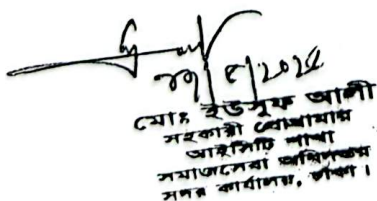 মোঃ ইউসুফ আলী
সহকারী প্রোগ্রামার
আইসিটি শাখা
সমাজসেবা অধিদফতর
সদর কার্যালয়, ঢাকা।